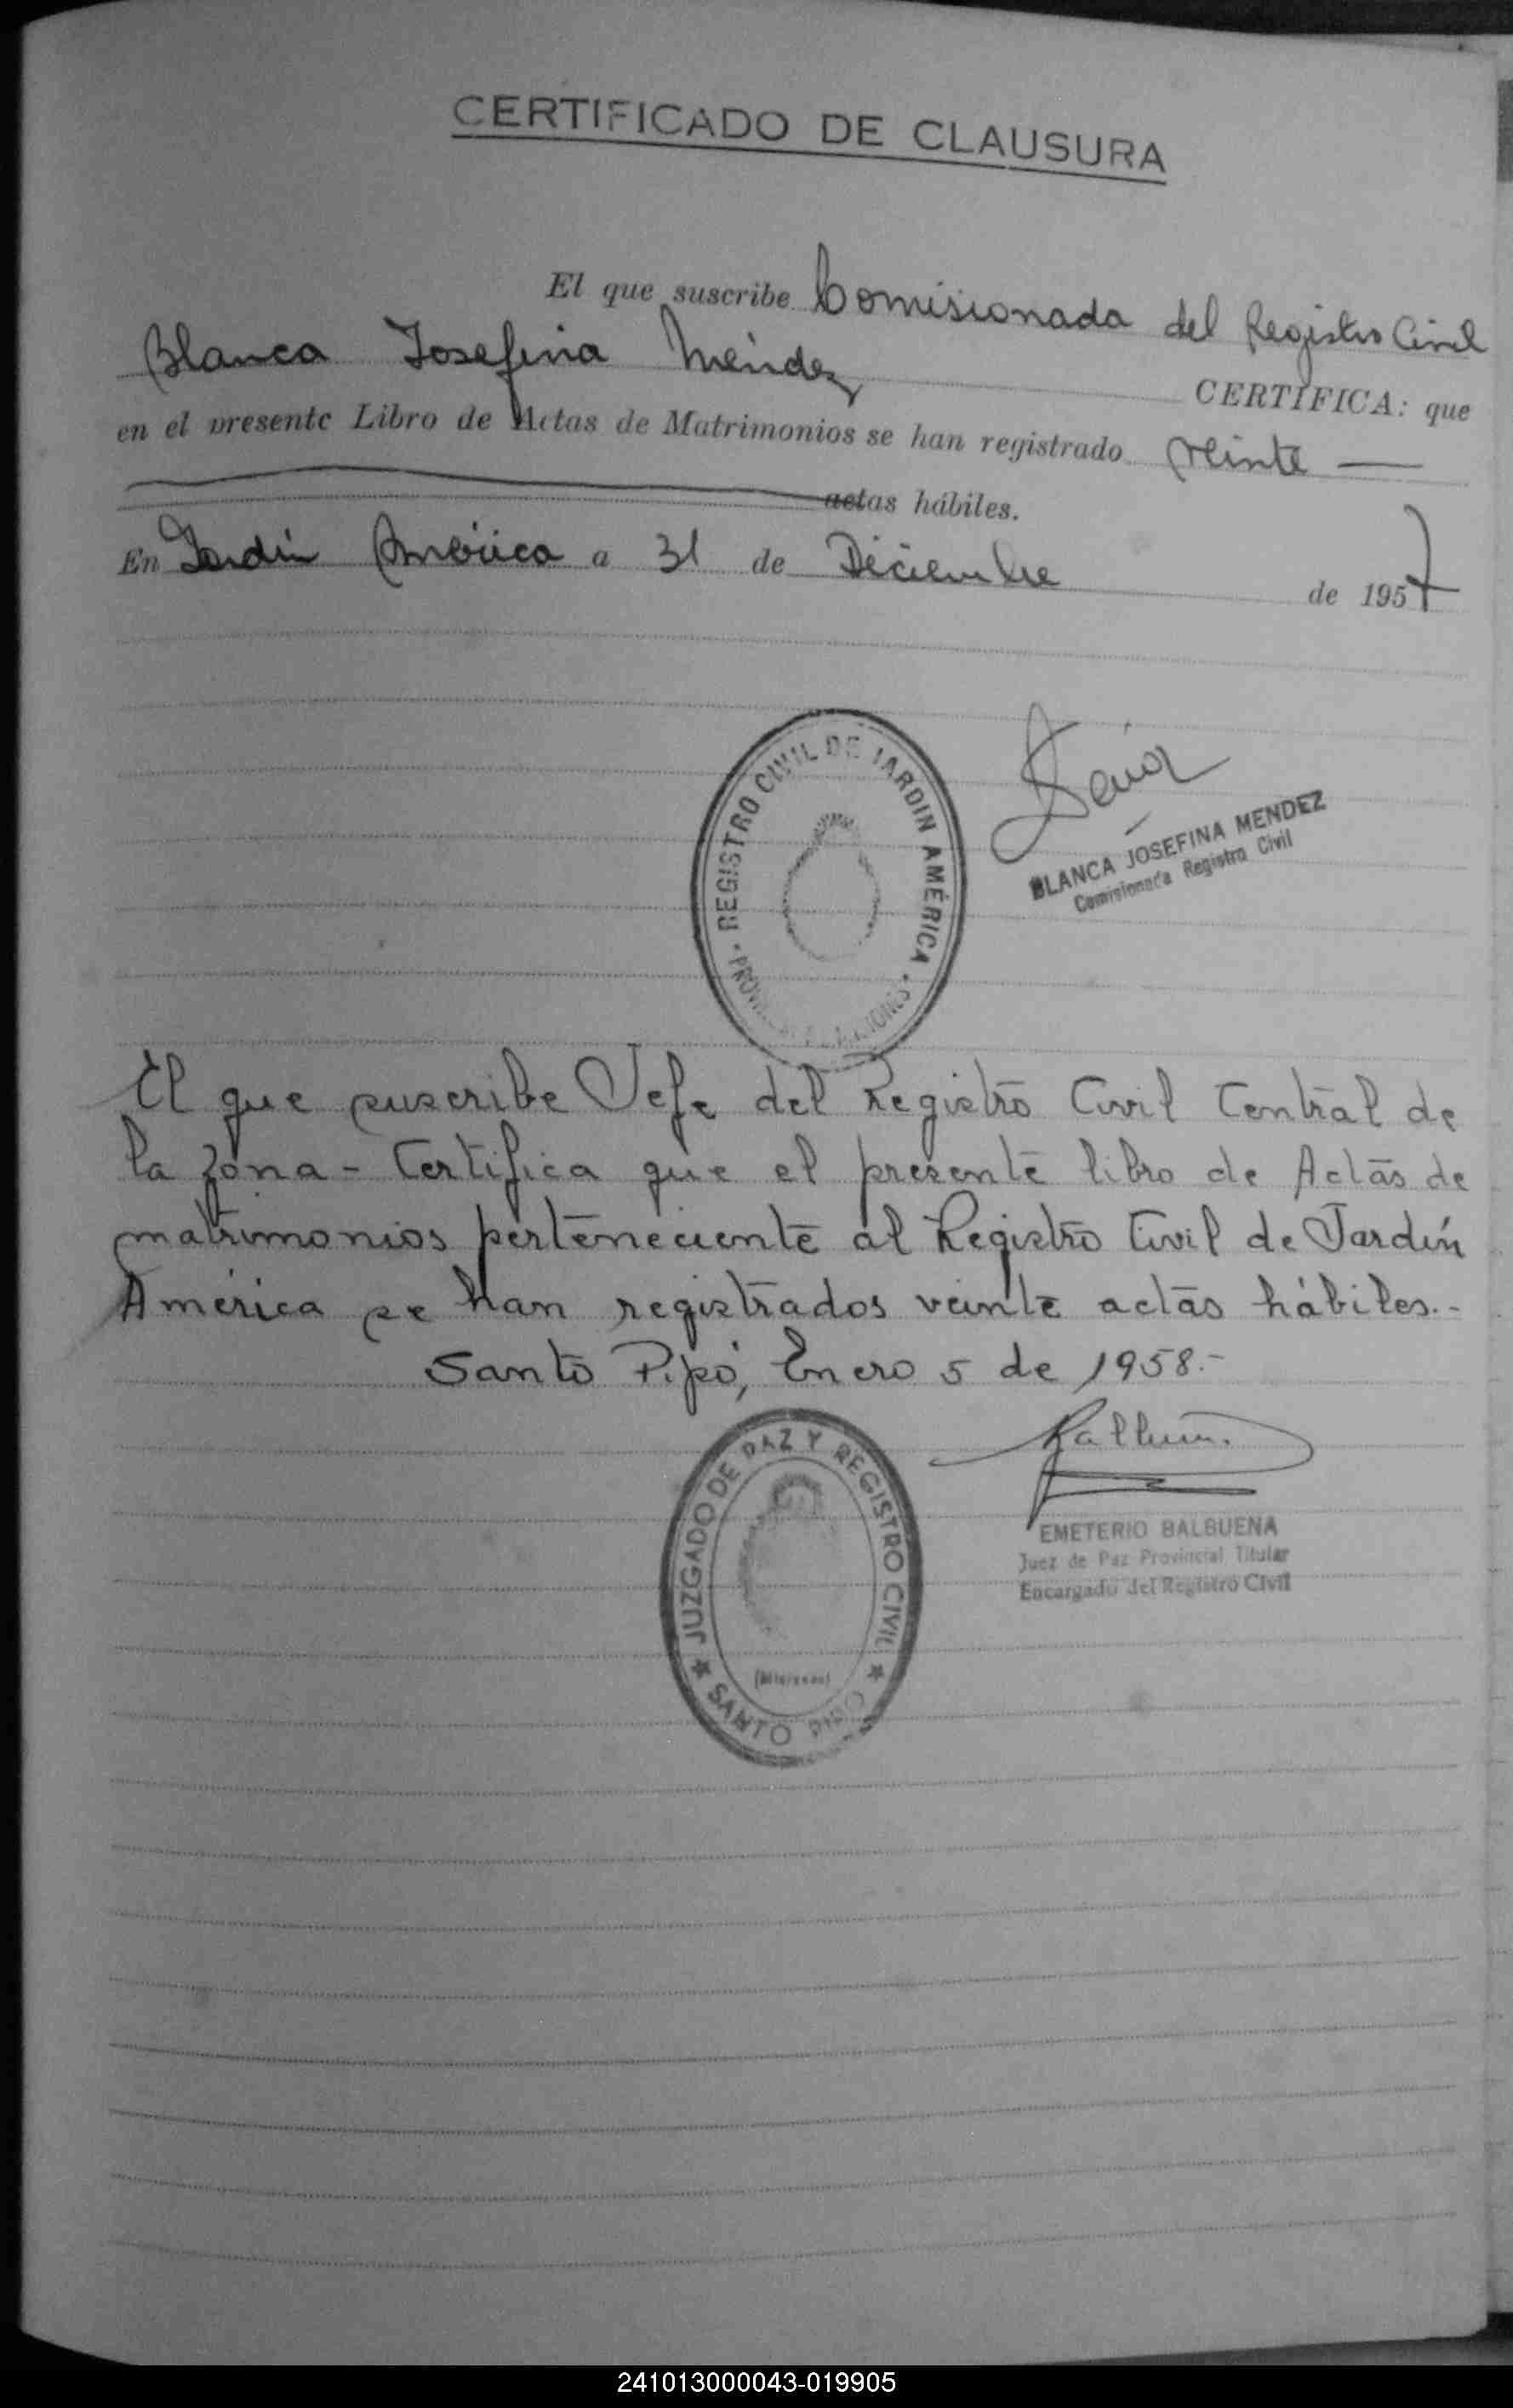 CERTIFICADO DE CLAUSURA
El que suscribe Comisionada del Registro Civil
Blanca Josefina Méndez CERTIFICA: que
en el presente Libro de Actas de Matrimonios se han registrado Veinte —
actas hábiles.
En Jardín América a 31 de Diciembre de 1957
REGISTRO CIVIL DE JARDIN AMÉRICA
BLANCA JOSEFINA MENDEZ
Comisionada Registro Civil
El que suscribe Jefe del Registro Civil Central de
la zona - Certifica que el presente libro de Actas de
matrimonios perteneciente al Registro Civil de Jardín
América se han registrados veinte actas hábiles.-
Santo Pipó, Enero 5 de 1958.-
JUZGADO DE PAZ Y REGISTRO CIVIL
(Misiones)
SANTO PIPO
EMETERIO BALBUENA
Juez de Paz Provincial Titular
Encargado del Registro Civil
241013000043-019905